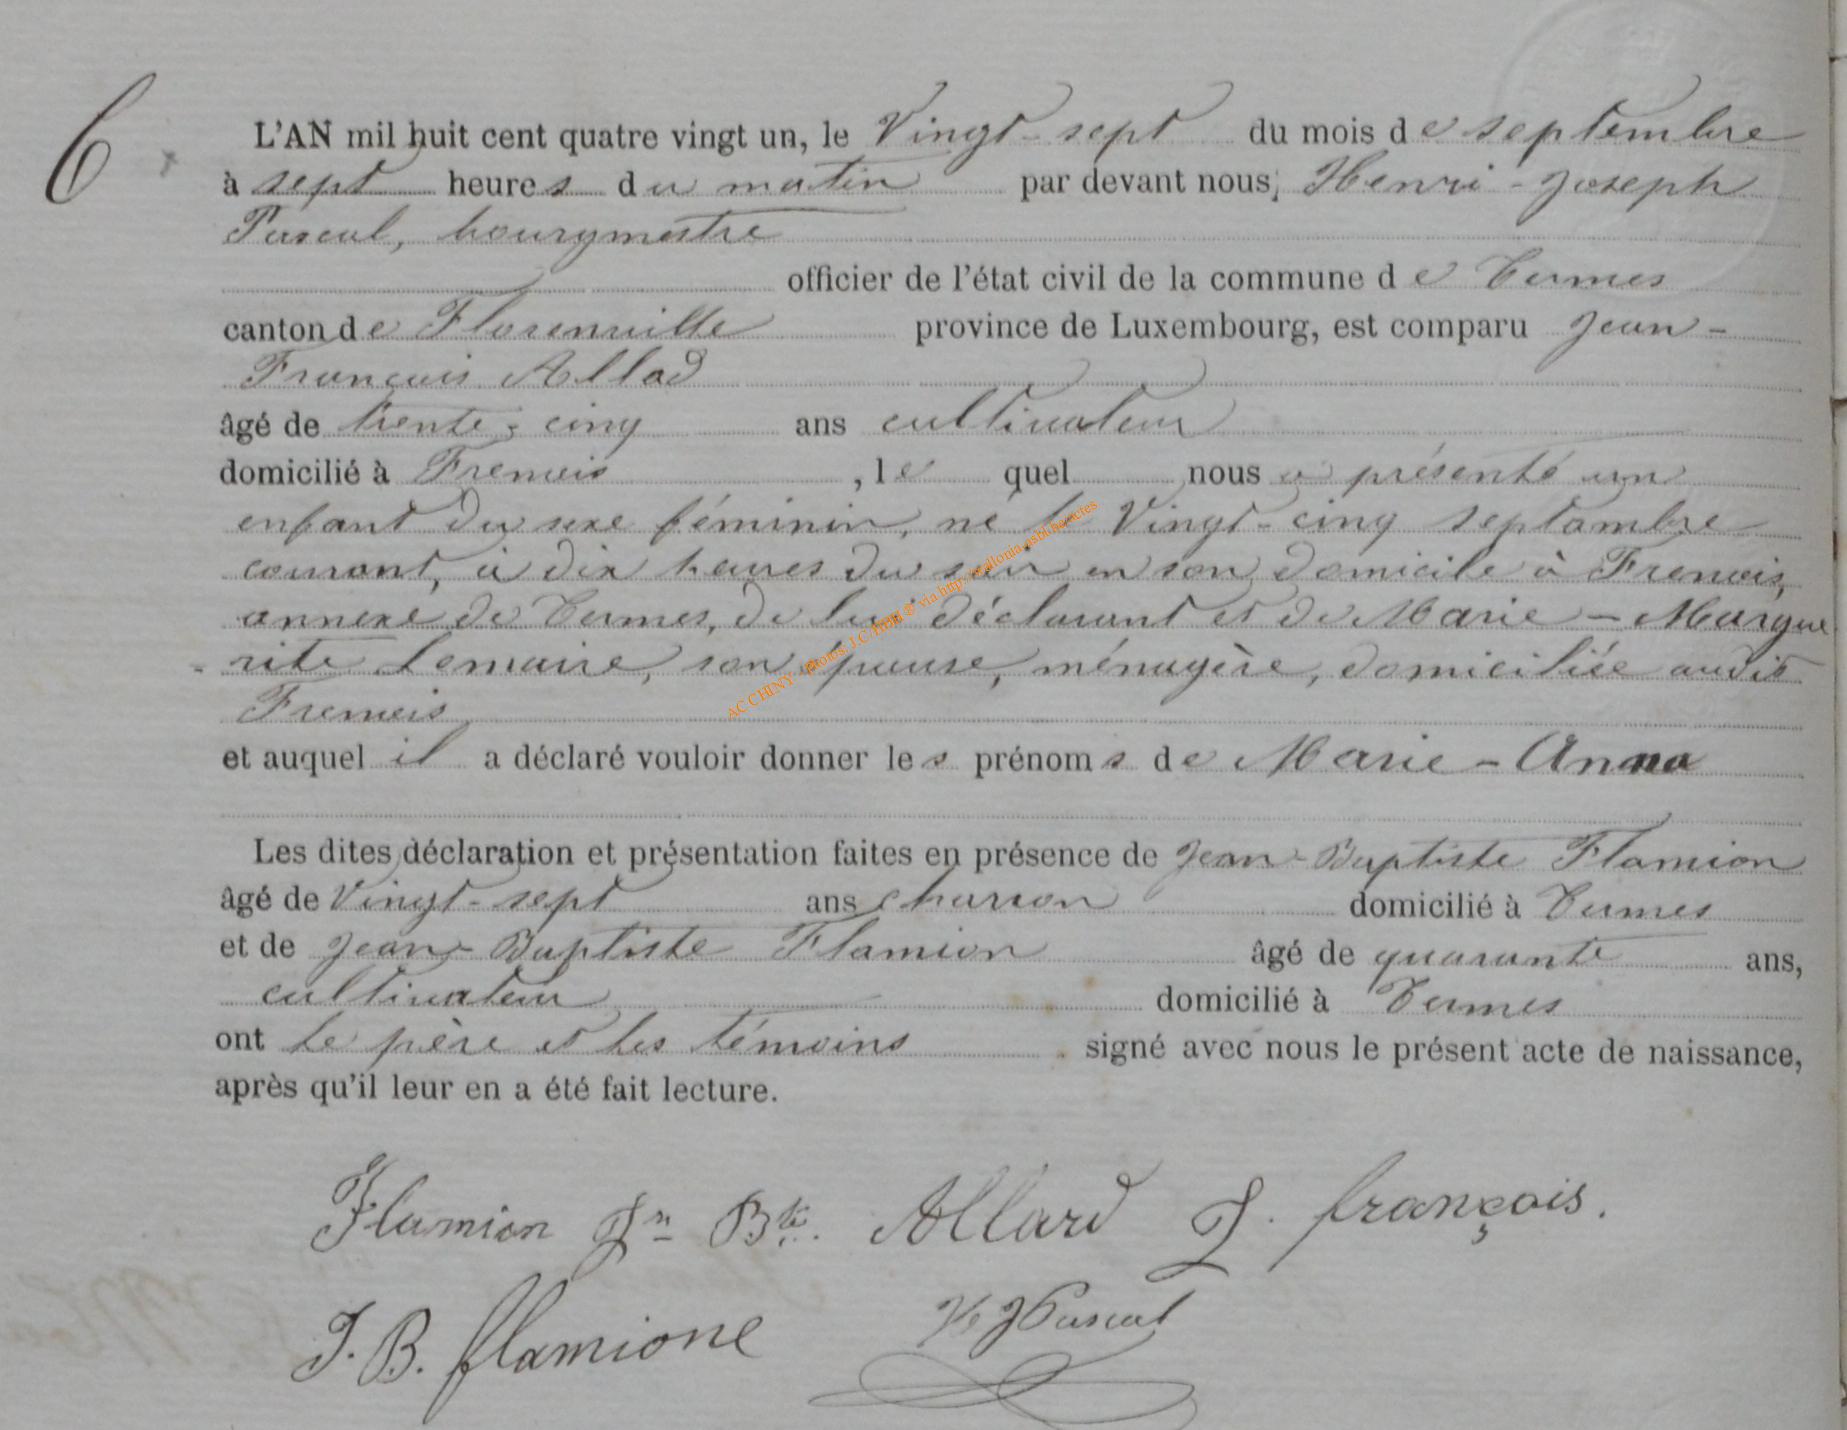 6
L'AN mil huit cent quatre vingt un, le Vingt-sept du mois de septembre
à sept heures du matin par devant nous, Henri-Joseph
Pascal, bourgmestre
officier de l'état civil de la commune de Termes
canton de Florenville province de Luxembourg, est comparu Jean-
François Allad
âgé de trente-cinq ans cultivateur
domicilié à Frenois, lequel nous a présenté un
enfant du sexe féminin, né le Vingt-cinq septembre
courant, à dix heures du soir en son domicile à Frenois,
annexe de Termes, de lui déclarant et de Marie-Margue
rite Lemaire, son épouse, ménagère, domiciliée audit
Frenois
et auquel il a déclaré vouloir donner les prénoms de Marie-Anna
Les dites déclaration et présentation faites en présence de Jean-Baptiste Flamion
âgé de Vingt-sept ans charron domicilié à Termes
et de Jean-Baptiste Flamion âgé de quarante ans,
cultivateur domicilié à Termes
ont le père et les témoins signé avec nous le présent acte de naissance,
après qu'il leur en a été fait lecture.
Flamion Jn Bte. Allard J. françois.
J. B. flamione HJPascal
AC CHINY - photos, J.C. via http://wallonia.asbl.be/actes